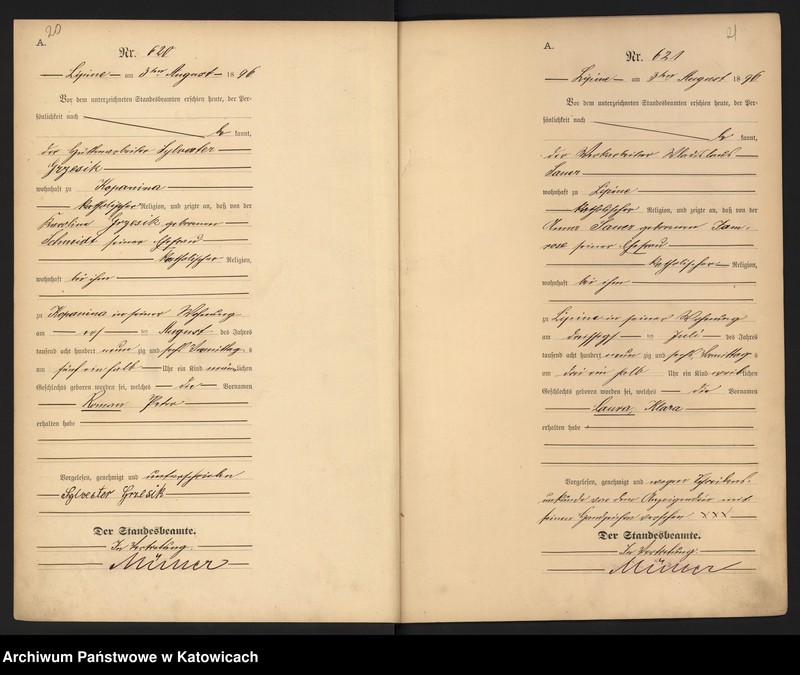 20
A.
Nr. 620
Lipine am 3ten August 1896
Vor dem unterzeichneten Standesbeamten erschien heute, der Per-
sönlichkeit nach
be kannt,
der Hüttenarbeiter Sylvester
Grzesik
wohnhaft zu Kopanina
katholischer Religion, und zeigte an, daß von der
Karoline Grzesik geborenen
Schmeidt seiner Ehefrau
katholischer Religion,
wohnhaft bei ihm
zu Kopanina in seiner Wohnung
am ersten August des Jahres
tausend acht hundert neun zig und sechs Vormittags
um fünf ein halb Uhr ein Kind männlichen
Geschlechts geboren worden sei, welches die Vornamen
Roman Peter
erhalten habe
Vorgelesen, genehmigt und unterschrieben
Sylvester Grzesik
Der Standesbeamte.
In Vertretung.
21
A.
Nr. 621
Lipine am 3ten August 1896
Vor dem unterzeichneten Standesbeamten erschien heute, der Per-
sönlichkeit nach
be kannt,
der Werkarbeiter
Sauer
wohnhaft zu Lipine
katholischer Religion, und zeigte an, daß von der
Anna Sauer geborenen Jam-
rose seiner Ehefrau
katholischer Religion,
wohnhaft bei ihm
zu Lipine in seiner Wohnung
am Juli des Jahres
tausend acht hundert neun zig und sechs Vormittag s
um drei ein halb Uhr ein Kind weiblichen
Geschlechts geboren worden sei, welches die Vornamen
Laura, Klara
erhalten habe
Vorgelesen, genehmigt und wegen Schreibens-
unkunde von dem Anzeigenden mit
seinen Handzeichen versehen XXX
Der Standesbeamte.
In Vertretung.
Archiwum Państwowe w Katowicach